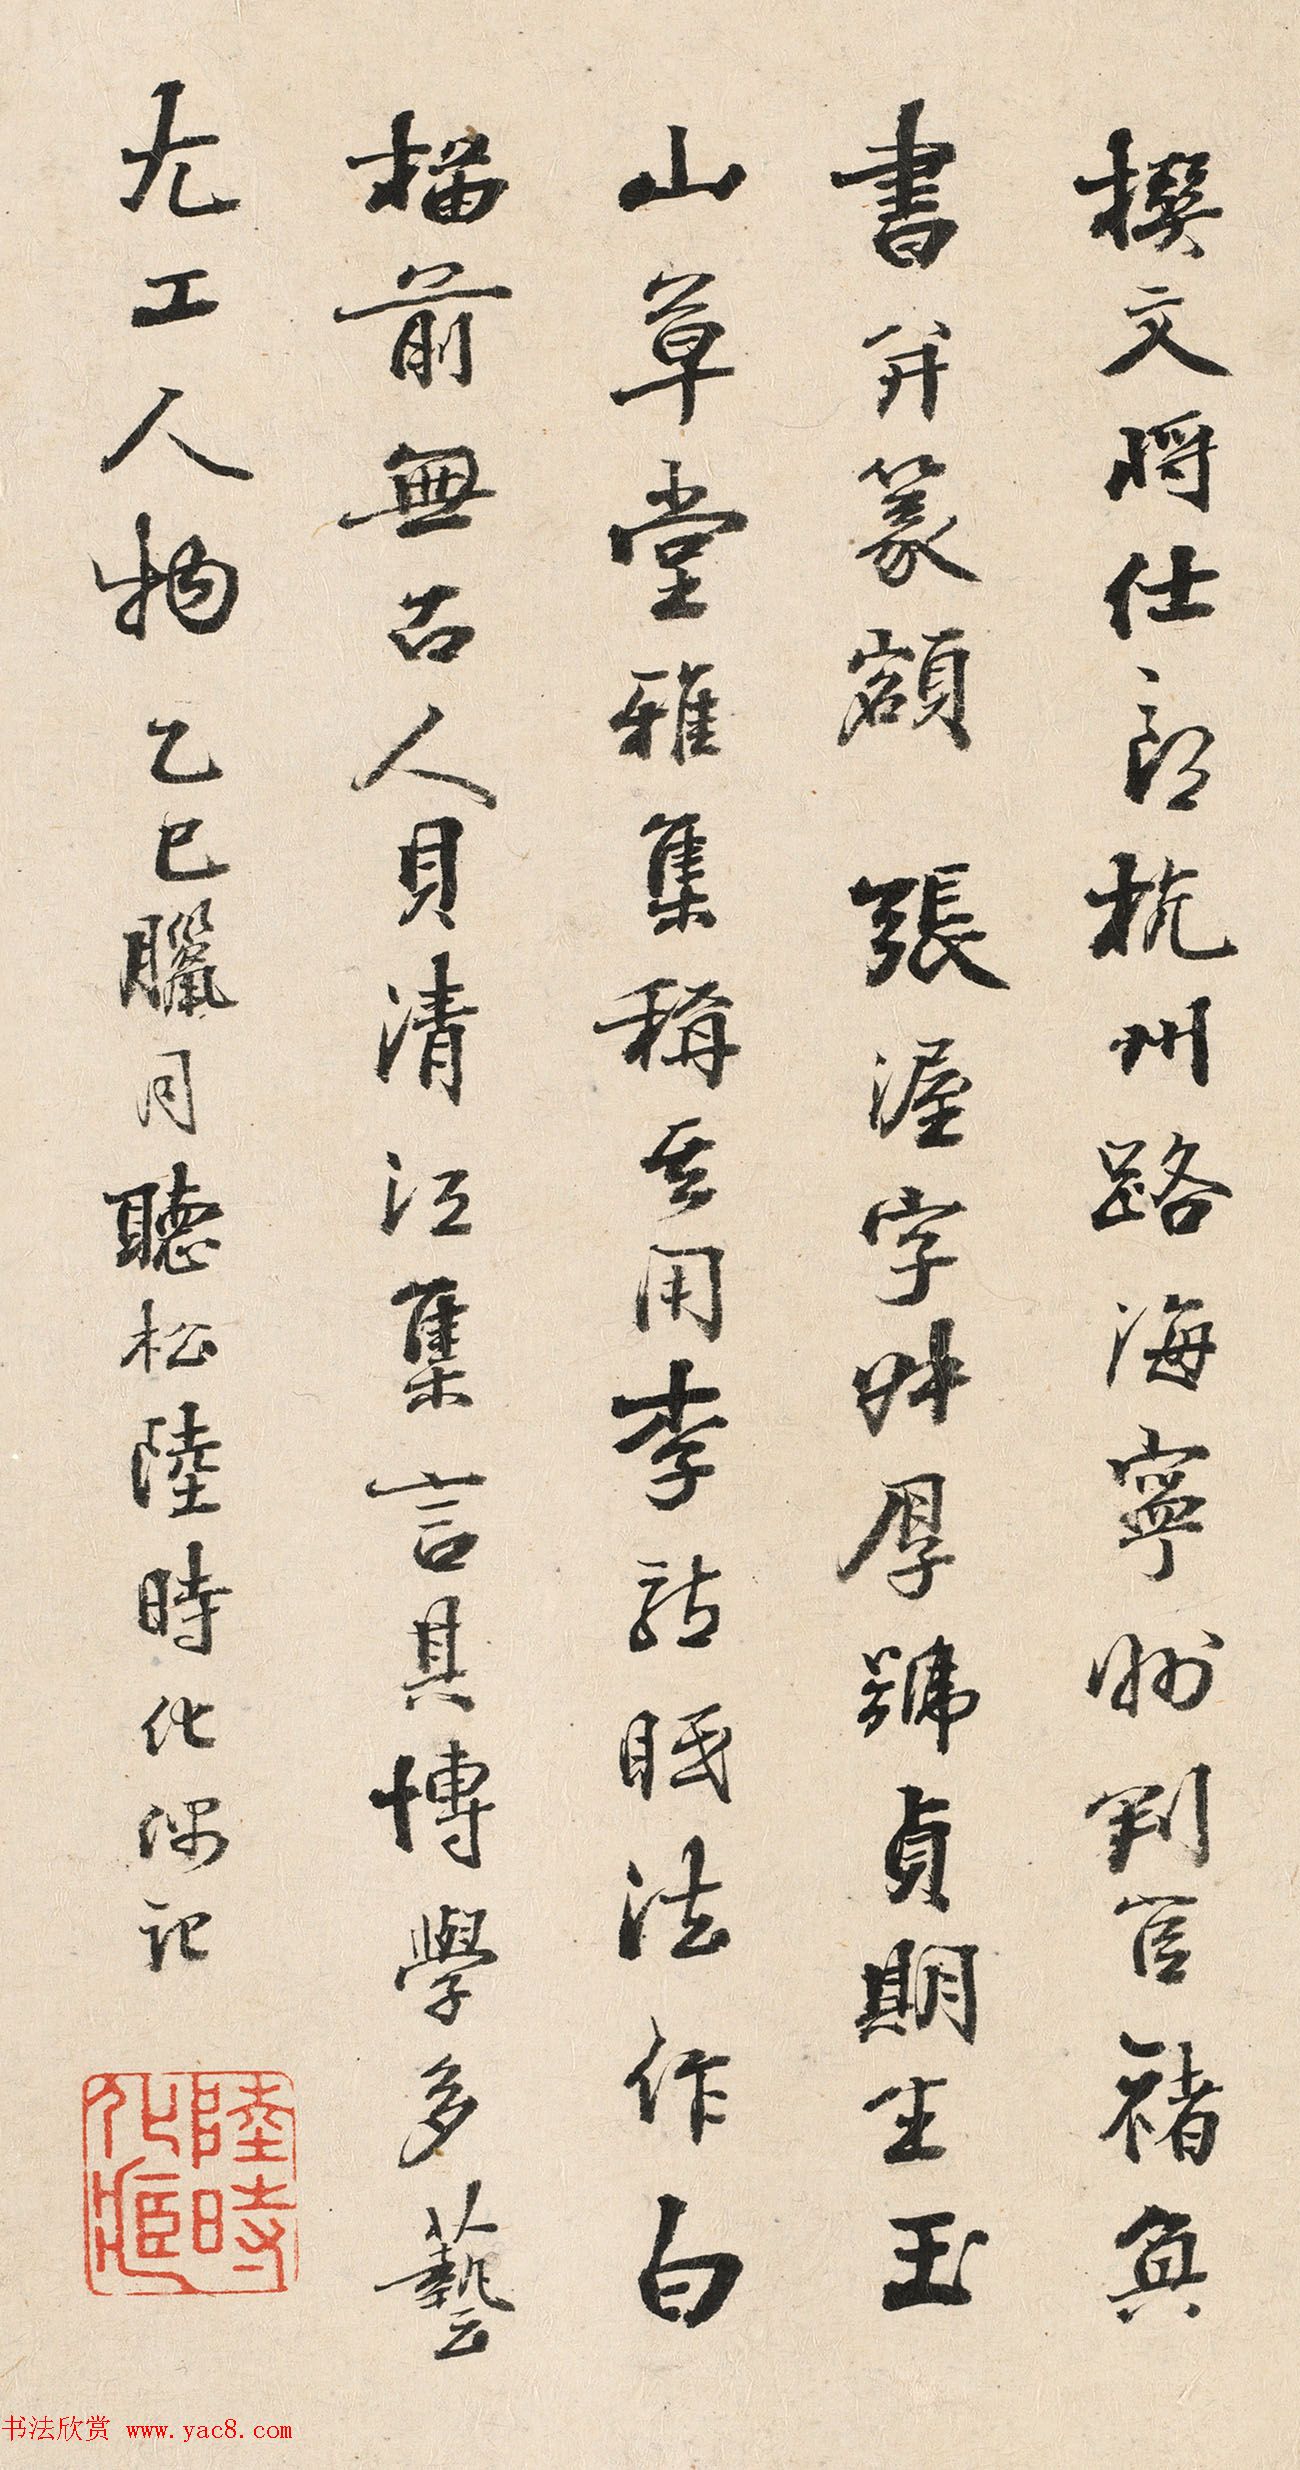 撰文將仕郎杭州路海寧州判官褚奐
書并篆額 張渥字叔厚號貞期生玉
山草堂雅集稱其用李龍眠法作白
描前無古人貝清江集言其博學多藝
尤工人物 乙巳臘月聽松陸時化偶記
陸時化藏
书法欣赏 www.yac8.com